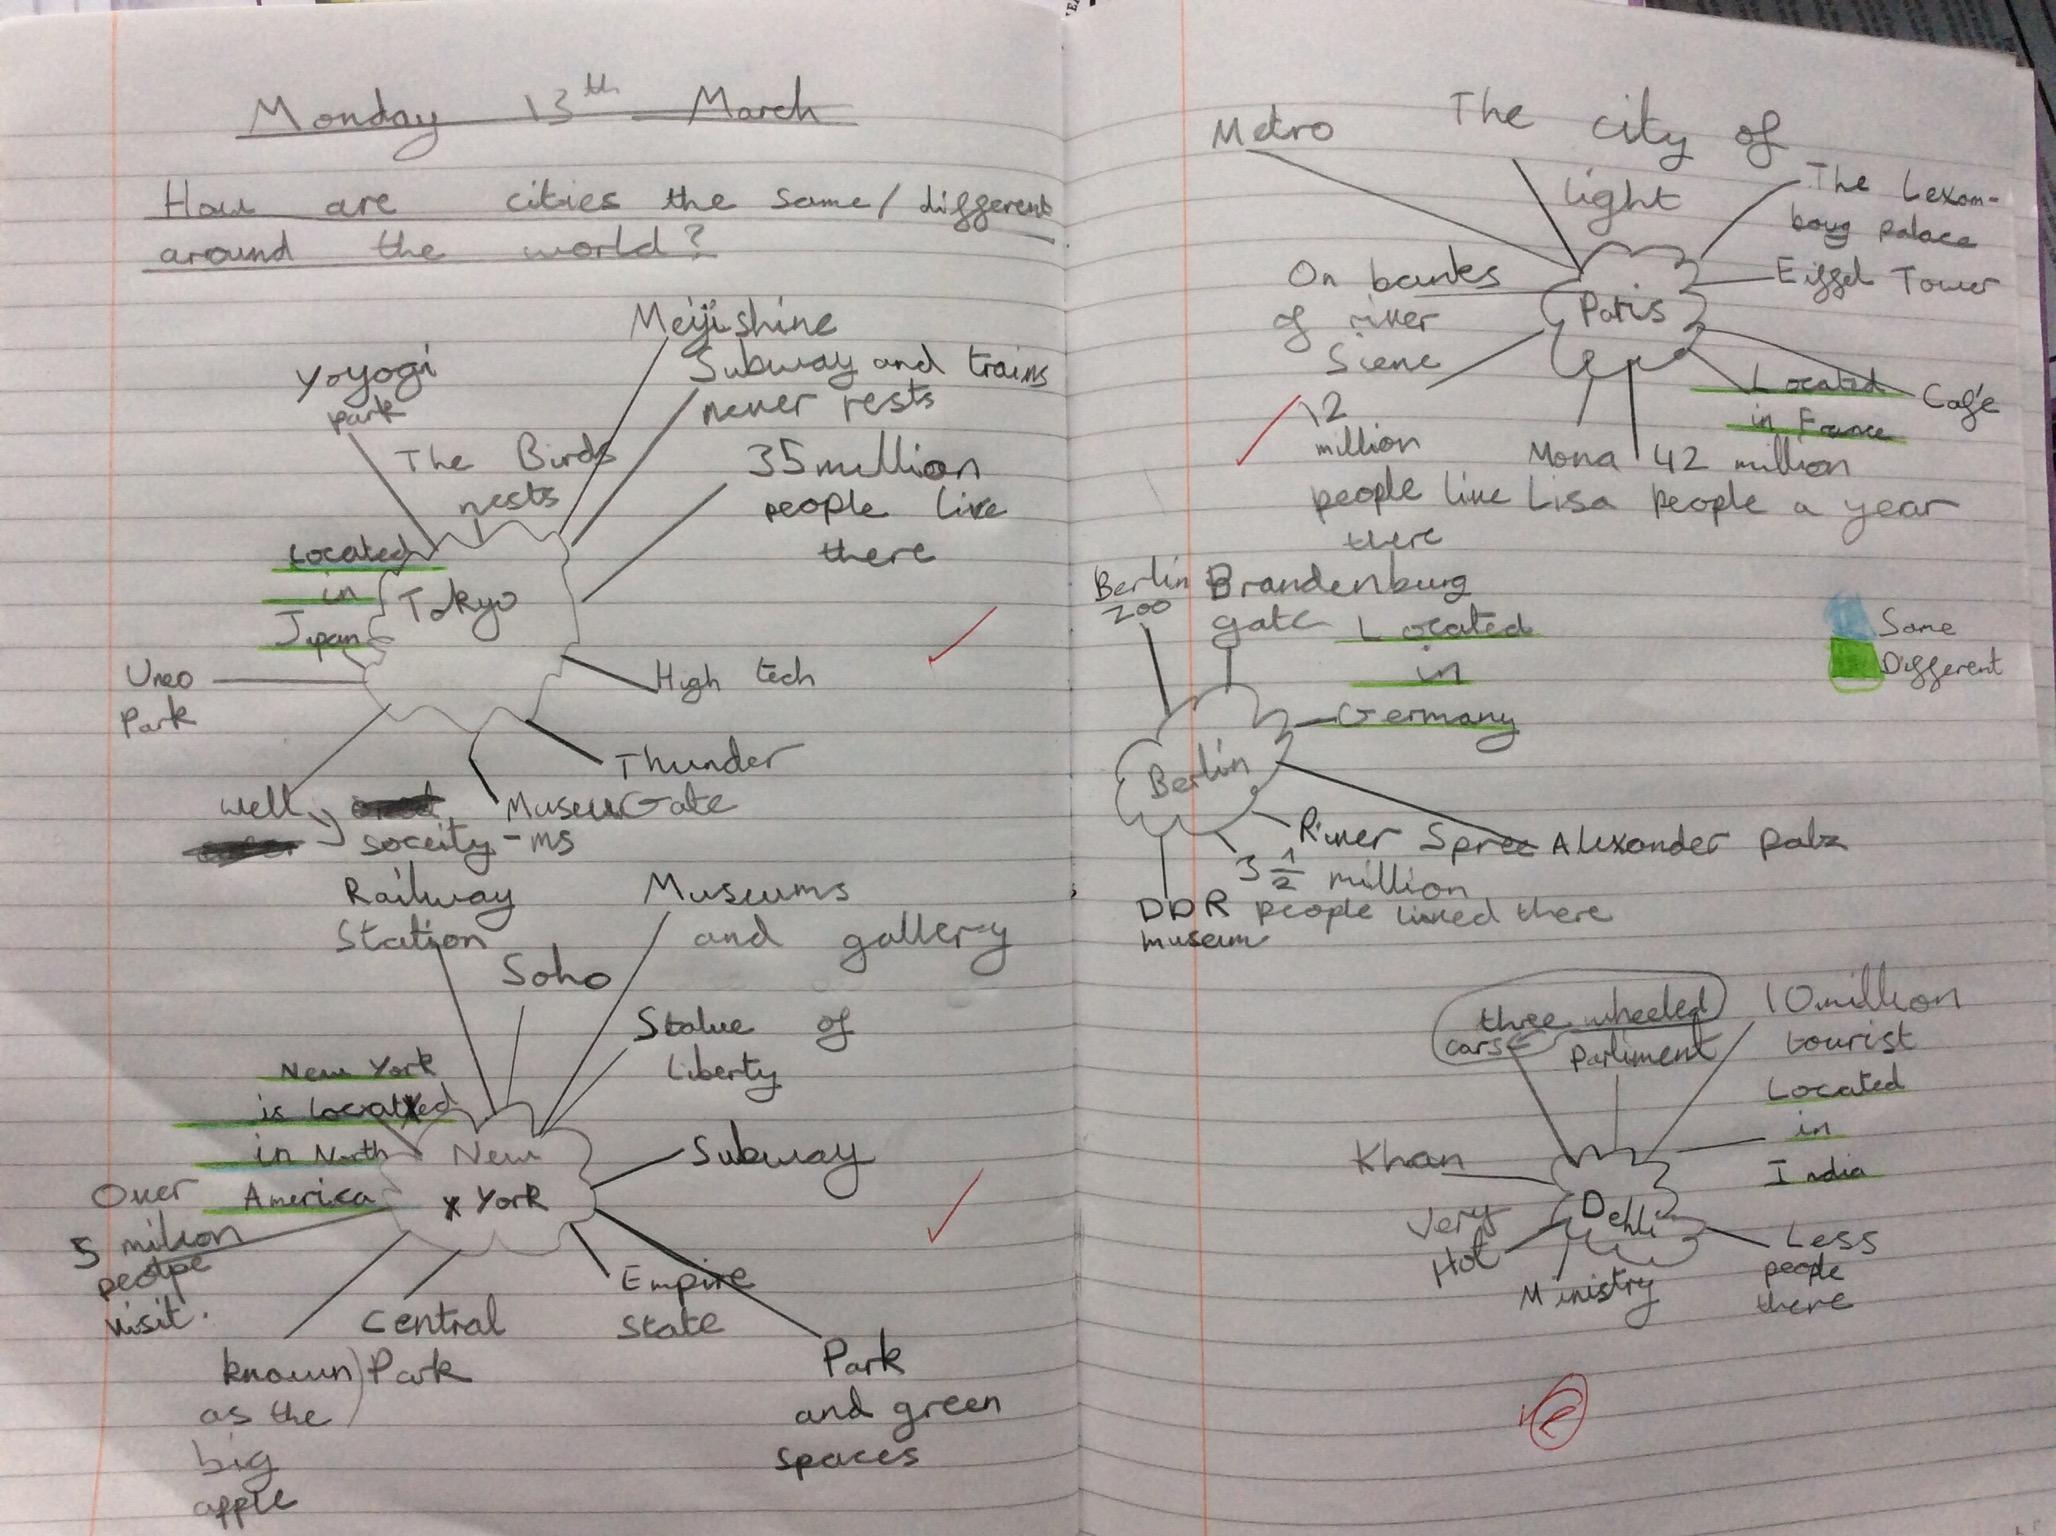 Monday 13th March
How are cities the same/different
around the world?
Meiji shine
Yoyogi
park
Subway and trains
never rests
The Birds
nests
35 million
people live
there
Located
in
Japan
Tokyo
Uneo
Park
High tech
Thunder
Gate
Museu
-ms
well
soceity
Railway
Station
Museums
and gallery
Soho
Statue of
Liberty
New York
is located
in North
America
New
York
Subway
Over
5 milion
people
visit.
Empire
State
Central
Park
known
as the
big
apple
Park
and green
spaces
Metro
The city of
light
The Lexom-
boug palace
On banks
of river
Siene
Paris
Eiffel Tower
Located
in France
Café
12
million
people live
there
Mona
Lisa
42 million
people a year
Berlin
zoo
Brandenburg
gate
Located
in
Germany
Same
Different
Berlin
River Spree
Alexander palz
3 1/2 million
people lived there
DDR
museum
three wheeled
cars
Parliment
10 million
tourist
Located
in
India
Khan
Dehli
Very
Hot
Ministry
Less
people
there